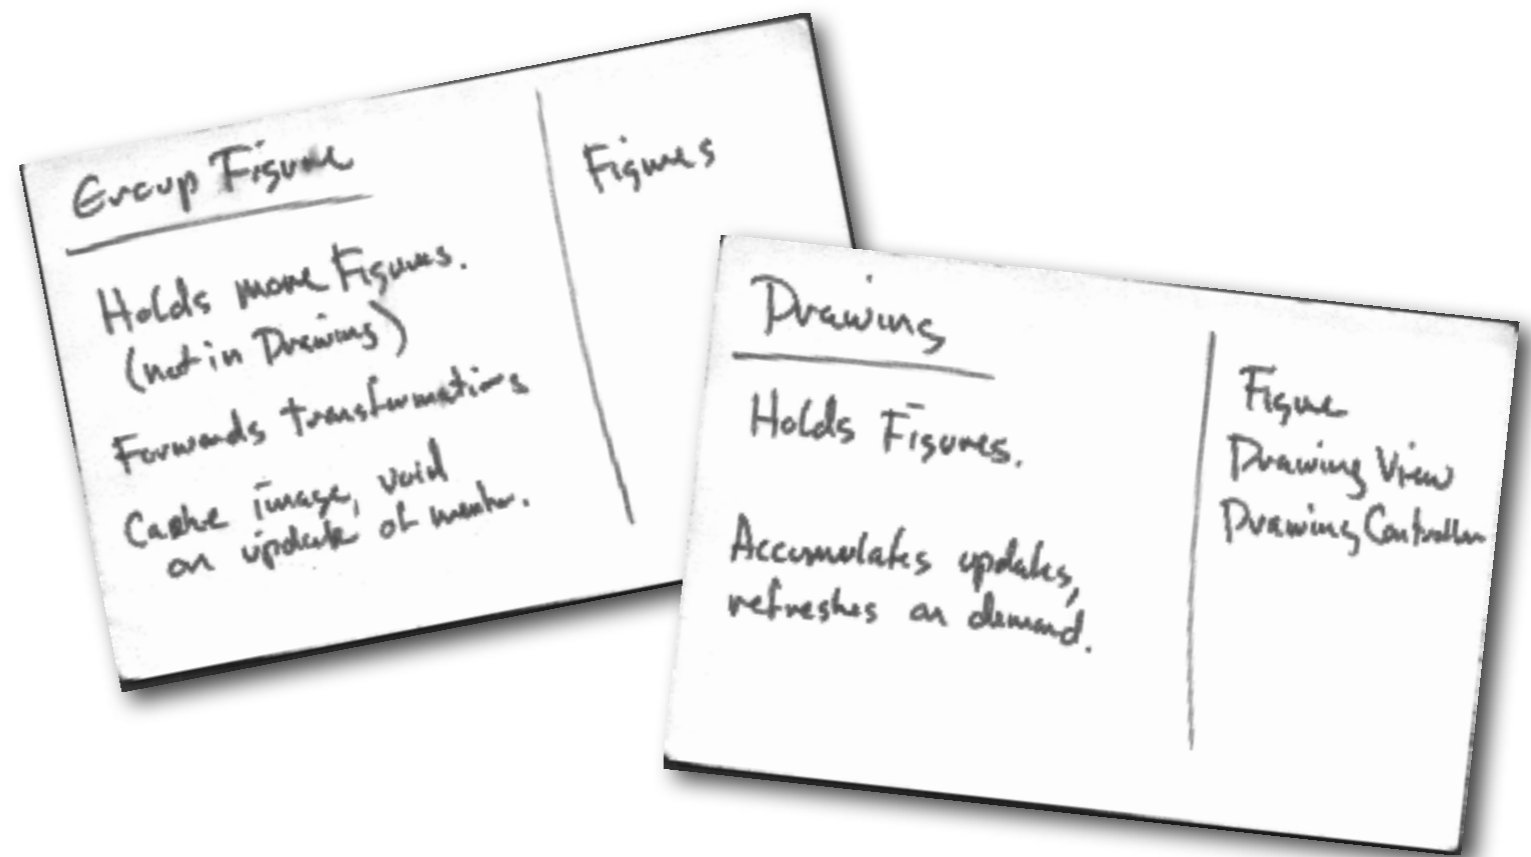 Group Figure
Holds more Figures.
(not in Drawing)
Forwards transformations
Cache image, void
on update of member.
Figures
Drawing
Holds Figures.
Accumulates updates,
refreshes on demand.
Figure
Drawing View
Drawing Controller